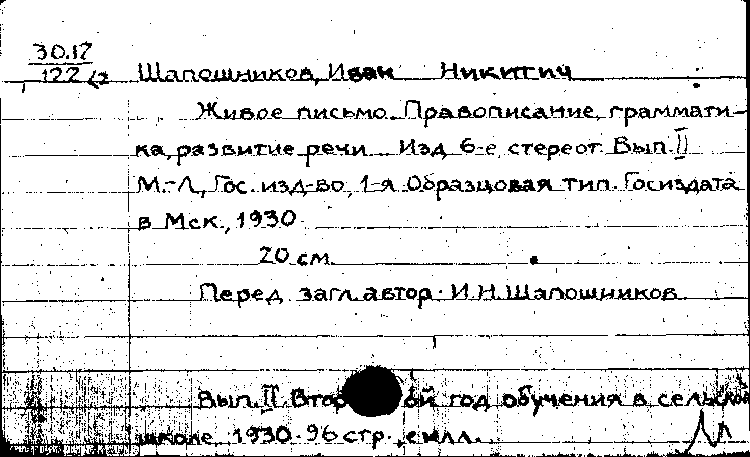 30.17
122
Шапошников, Иван Никитич
Живое письмо. Правописание, граммати-
ка, развитие речи Изд 6-е, стереот. Вып. II
М.-Л., Гос. изд-во, 1-я Образцовая тип. Госиздата
в Мск., 1930
20 см.
Перед загл. автор: И.Н. Шапошников
Вып. II. год обучения в сельской
школе, 1930. 96 стр., с илл.